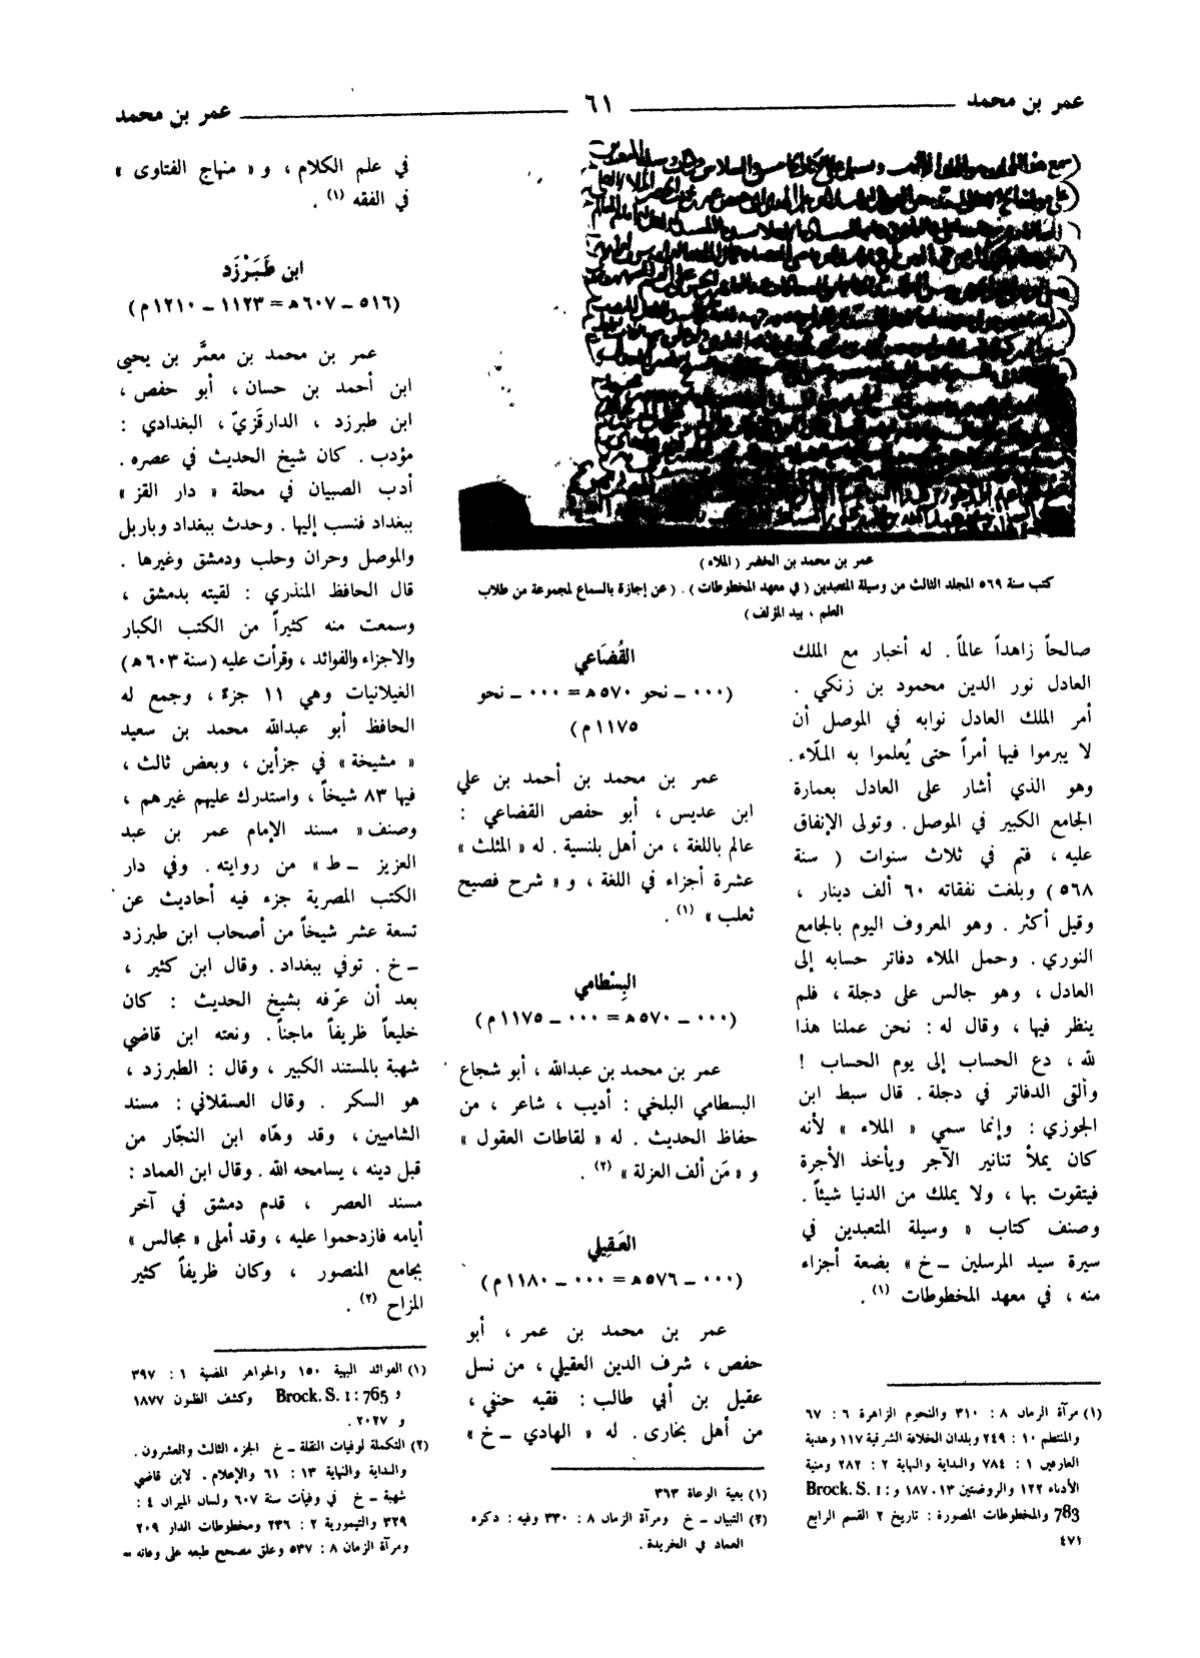 عمر بن محمد
٦١
عمر بن محمد
عمر بن محمد بن الخضر ( الملاء )
كتب سنة ٥٦٩ المجلد الثالث من وسيلة المتعبدين ( في معهد المخطوطات ) . ( عن إجازة بالسماع لمجموعة من طلاب
العلم ، بيد المؤلف )
صالحاً زاهداً عالماً . له أخبار مع الملك
العادل نور الدين محمود بن زنكي .
أمر الملك العادل نوابه في الموصل أن
لا يبرموا فيها أمراً حتى يُعلموا به الملّاء .
وهو الذي أشار على العادل بعمارة
الجامع الكبير في الموصل . وتولى الإنفاق
عليه ، فتم في ثلاث سنوات ( سنة
٥٦٨ ) وبلغت نفقاته ٦٠ ألف دينار ،
وقيل أكثر . وهو المعروف اليوم بالجامع
النوري . وحمل الملاء دفاتر حسابه إلى
العادل ، وهو جالس على دجلة ، فلم
ينظر فيها ، وقال له : نحن عملنا هذا
لله ، دع الحساب إلى يوم الحساب !
وألقى الدفاتر في دجلة . قال سبط ابن
الجوزي : وإنما سمي « الملاء » لأنه
كان يملأ تنانير الآجر ويأخذ الأجرة
فيتقوت بها ، ولا يملك من الدنيا شيئاً .
وصنف كتاب « وسيلة المتعبدين في
سيرة سيد المرسلين ــ خ » بضعة أجزاء
منه ، في معهد المخطوطات (١) .
(١) مرآة الزمان ٨ : ٣١٠ والنجوم الزاهرة ٦ : ٦٧
والمنتظم ١٠ : ٢٤٩ وبلدان الخلافة الشرقية ١١٧ وهدية
العارفين ١ : ٧٨٤ والبداية والنهاية ٢ : ٢٨٢ ومنية
الأدباء ١٢٢ والروضتين ١٣ ، ١٨٧ و Brock. S. 1 :
783 والمخطوطات المصورة : تاريخ ٢ القسم الرابع
٤٧١
القُضَاعي
(٠٠٠ ــ نحو ٥٧٠ هـ = ٠٠٠ ــ نحو
١١٧٥ م)
عمر بن محمد بن أحمد بن علي
ابن عديس ، أبو حفص القضاعي :
عالم باللغة ، من أهل بلنسية . له « المثلث »
عشرة أجزاء في اللغة ، و « شرح فصيح
ثعلب » (١) .
البِسْطامي
(٠٠٠ ــ ٥٧٠ هـ = ٠٠٠ ــ ١١٧٥ م)
عمر بن محمد بن عبدالله ، أبو شجاع
البسطامي البلخي : أديب ، شاعر ، من
حفاظ الحديث . له « لقاطات العقول »
و « مَن ألف العزلة » (٢) .
العَقِيلي
(٠٠٠ ــ ٥٧٦ هـ = ٠٠٠ ــ ١١٨٠ م)
عمر بن محمد بن عمر ، أبو
حفص ، شرف الدين العقيلي ، من نسل
عقيل بن أبي طالب : فقيه حنفي ،
من أهل بخارى . له « الهادي ــ خ »
(١) بغية الوعاة ٣٦٣
(٢) التبيان ــ خ ومرآة الزمان ٨ : ٣٣٠ وفيه : ذكره
العماد في الخريدة .
في علم الكلام ، و « منهاج الفتاوى »
في الفقه (١) .
ابن طَبَرْزَد
(٥١٦ ــ ٦٠٧ هـ = ١١٢٣ ــ ١٢١٠ م)
عمر بن محمد بن معمَّر بن يحيى
ابن أحمد بن حسان ، أبو حفص ،
ابن طبرزد ، الدارقَزيّ ، البغدادي :
مؤدب . كان شيخ الحديث في عصره .
أدب الصبيان في محلة « دار القز »
ببغداد فنسب إليها . وحدث ببغداد وباربل
والموصل وحران وحلب ودمشق وغيرها .
قال الحافظ المنذري : لقيته بدمشق ،
وسمعت منه كثيراً من الكتب الكبار
والاجزاء والفوائد ، وقرأت عليه (سنة ٦٠٣ هـ)
الغيلانيات وهي ١١ جزءً ، وجمع له
الحافظ أبو عبدالله محمد بن سعيد
« مشيخة » في جزأين ، وبعض ثالث ،
فيها ٨٣ شيخاً ، واستدرك عليهم غيرهم ،
وصنف « مسند الإمام عمر بن عبد
العزيز ــ ط » من روايته . وفي دار
الكتب المصرية جزء فيه أحاديث عن
تسعة عشر شيخاً من أصحاب ابن طبرزد
ــ خ . توفي ببغداد . وقال ابن كثير ،
بعد أن عرّفه بشيخ الحديث : كان
خليعاً ظريفاً ماجناً . ونعته ابن قاضي
شهبة بالمستند الكبير ، وقال : الطبرزد ،
هو السكر . وقال العسقلاني : مسند
الشاميين ، وقد وهّاه ابن النجّار من
قبل دينه ، يسامحه الله . وقال ابن العماد :
مسند العصر ، قدم دمشق في آخر
أيامه فازدحموا عليه ، وقد أملى « مجالس »
بجامع المنصور ، وكان ظريفاً كثير
المزاح (٢) .
(١) الفوائد البهية ١٥٠ والجواهر المضية ١ : ٣٩٧
و Brock. S. 1 : 765 وكشف الظنون ١٨٧٧
و ٢٠٢٧ .
(٢) التكملة لوفيات النقلة ــ خ الجزء الثالث والعشرون .
والبداية والنهاية ١٣ : ٦١ والإعلام . لابن قاضي
شهبة ــ خ في وفيات سنة ٦٠٧ ولسان الميزان ٤ :
٣٢٩ والتيمورية ٢ : ٢٣٦ ومخطوطات الدار ٢٠٩
ومرآة الزمان ٨ : ٥٣٧ وعلق مصحح طبعه على وفاته =